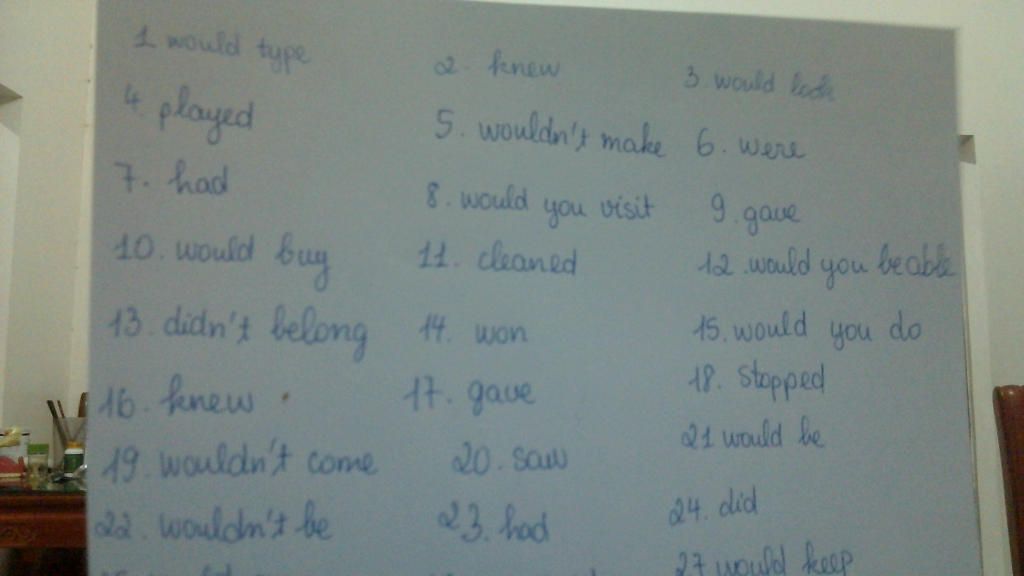 1 would type 2. knew 3. would look
4. played 5. wouldn't make 6. were
7. had 8. would you visit 9. gave
10. would buy 11. cleaned 12. would you be able
13. didn't belong 14. won 15. would you do
16. knew 17. gave 18. stopped
19. wouldn't come 20. saw 21 would be
22. wouldn't be 23. had 24. did
27 would keep